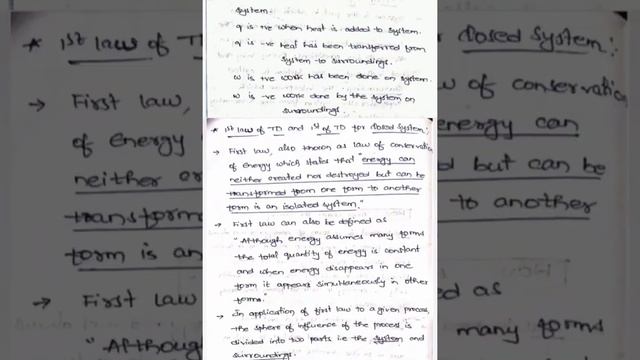 system.
q is +ve when heat is added to system.
q is -ve heat has been transferred from
system to surroundings.
w is +ve work has been done on system.
w is -ve work done by the system on
surroundings.
* 1st law of TD and 1st of TD for closed system:
→ First law, also known as law of conservation
of energy which states that "energy can
neither created nor destroyed but can be
transformed from one form to another
form is an isolated system."
→ First law can also be defined as
"Although energy assumes many forms
the total quantity of energy is constant
and when energy disappears in one
form it appears simultaneously in other
forms."
→ In application of first law to a given process,
the sphere of influence of the process is
divided into two parts i.e the system and
surroundings.
* 1st law of TD
→ First law,
of energy
neither cre
transform
form is an
→ First law
"Although
closed system:
w of conservation
energy can
but can be
to another
ed as
many forms